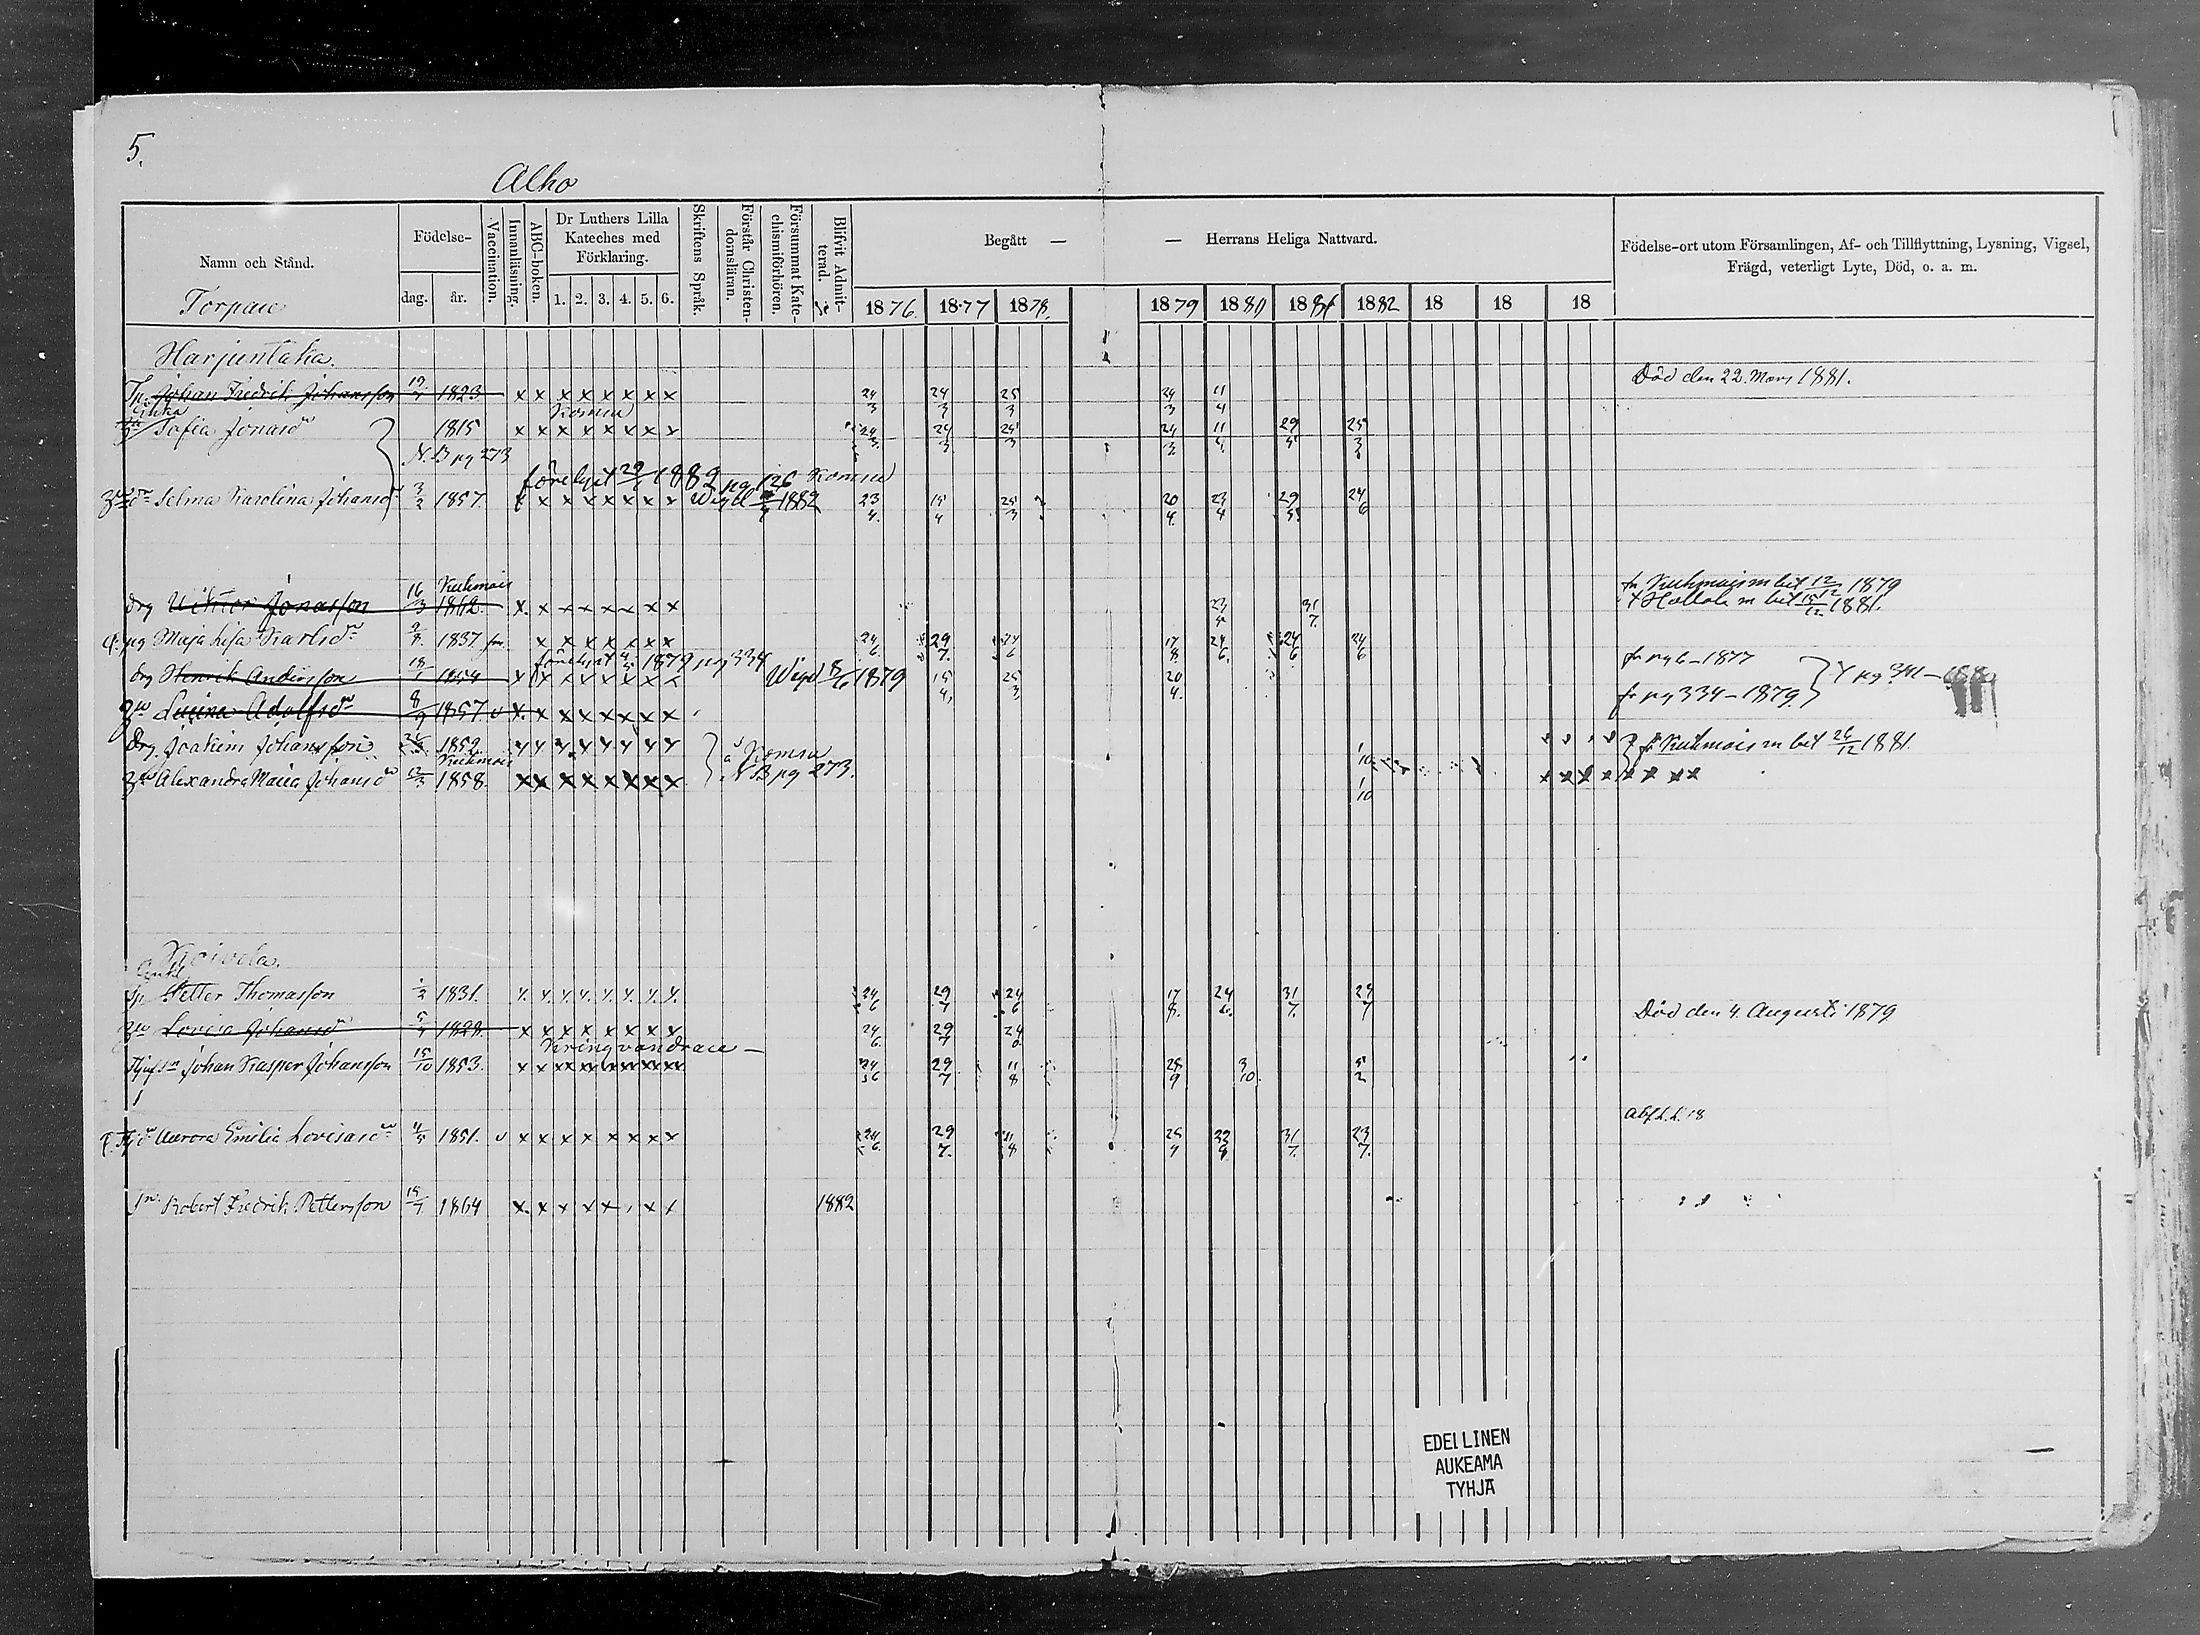 5.
Alho
Namn och Stånd.
Torpare
Födelse-
dag. år.
Vaccination.
Innanläsning.
ABC-boken.
Dr Luthers Lilla
Kateches med
Förklaring.
1. 2. 3. 4. 5. 6.
Skriftens Språk.
Förstår Christen-
domsläran.
Försummat Kate-
chismiförhören.
Blifvit Admit-
terad.
Begått — — Herrans Heliga Nattvard.
1876. 1877 1878. 1879 1880 1881 1882 18 18 18
Födelse-ort utom Församlingen, Af- och Tillflyttning, Lysning, Vigsel,
Frägd, veterligt Lyte, Död, o. a. m.
Harjuntaka.
Tp. Johan Fredrik Johansson 1823 x x x x x x x x 24/3 24/3 25/3 24/3 11/4 Död den 22. Mars 1881.
Enka
Sofia Jonasdr 1815 x x x x x x x x 24/3 24/3 25/3 24/3 11/4 29/5 25/3
N.B pg 273
förelyst 29/1 1882 pg 126
Selma Karolina Johansdr 3/2 1857. x x x x x x x x Wigd 1882 23/4. 15/4 25/3 20/4. 23/4 29/5 24/6
Kuhmois fr Kuhmois m bet 12/12 1879
drg Viktor Jonasson 16/3 1862. x x x x x x x x 23/4 31/7. Hollola m bet 15/12 1881.
pg Maja Lisa Karlsdr 1837 x x x x x x x 24/6 29/7. 24/6 17/8. 24/6. 24/6 24/6
förelyst 4/5 1879 pg 334
drg Henrik Andersson 18/1 1854 x x x x x x x x Wigd 8/6 1879 15/4. 25/3 20/4. fr pg 6 - 1877
Adolfsdr 8/9 1857 v x x x x x x x x fr pg 334 - 1879
drg. Joakim Johansson 1852 Komsu fr Kuhmois m bet 26/12 1881.
Kuhmois
Alexandra Maria Johansdr 12/3 1858. x x x x x x x x NB pg 273. 1/10
Koivula.
Enkl.
Tp Petter Thomasson 1/2 1831. 24/6 29/7 24/6 17/8. 24/6. 31/7. 29/7
Lovisa Johansdr 5/4 1828. x x x x x x x x 24/6. 29/7 24/6 Död den 4. Augusti 1879
Kringvandrare —
Johan Kasper Johansson 15/10 1853. 24/6 29/7 11/8 28/9 3/10. 5/2
Abf. h. h. 18
Aurora Emilia Lovisasdr 4/5 1851. v x x x x x x x x 24/6. 29/7. 11/8 25/9 31/7. 23/7.
Robert Fredrik Pettersson 1864 x x x x x x x 1882
EDELLINEN
AUKEAMA
TYHJÄ